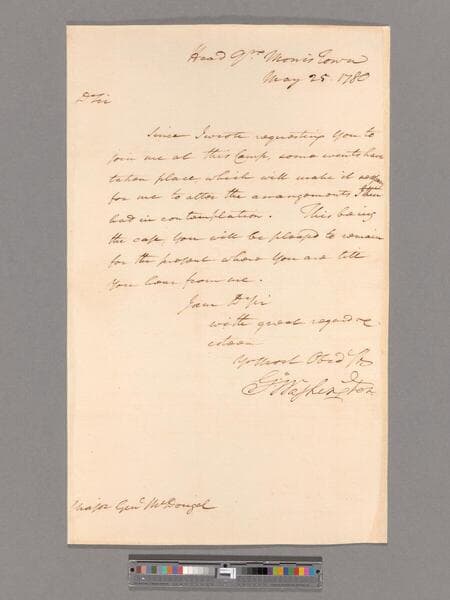 Head Qrs Morris Town
May 25. 1780
Dr Sir
Since I wrote requesting you to
join me at this Camp, some events have
taken place which will make it
for me to alter the arrangements I then
had in contemplation. This being
the case, you will be pleased to remain
for the present where you are till
you hear from me.
I am Dr Sir
with great regard &
esteem
Yr Most Obedt St
Go Washington
Major Genl McDougal